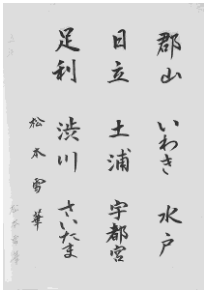 郡山 いわき 水戸
日立 土浦 宇都宮
足利 渋川 さいたま
松本雪華